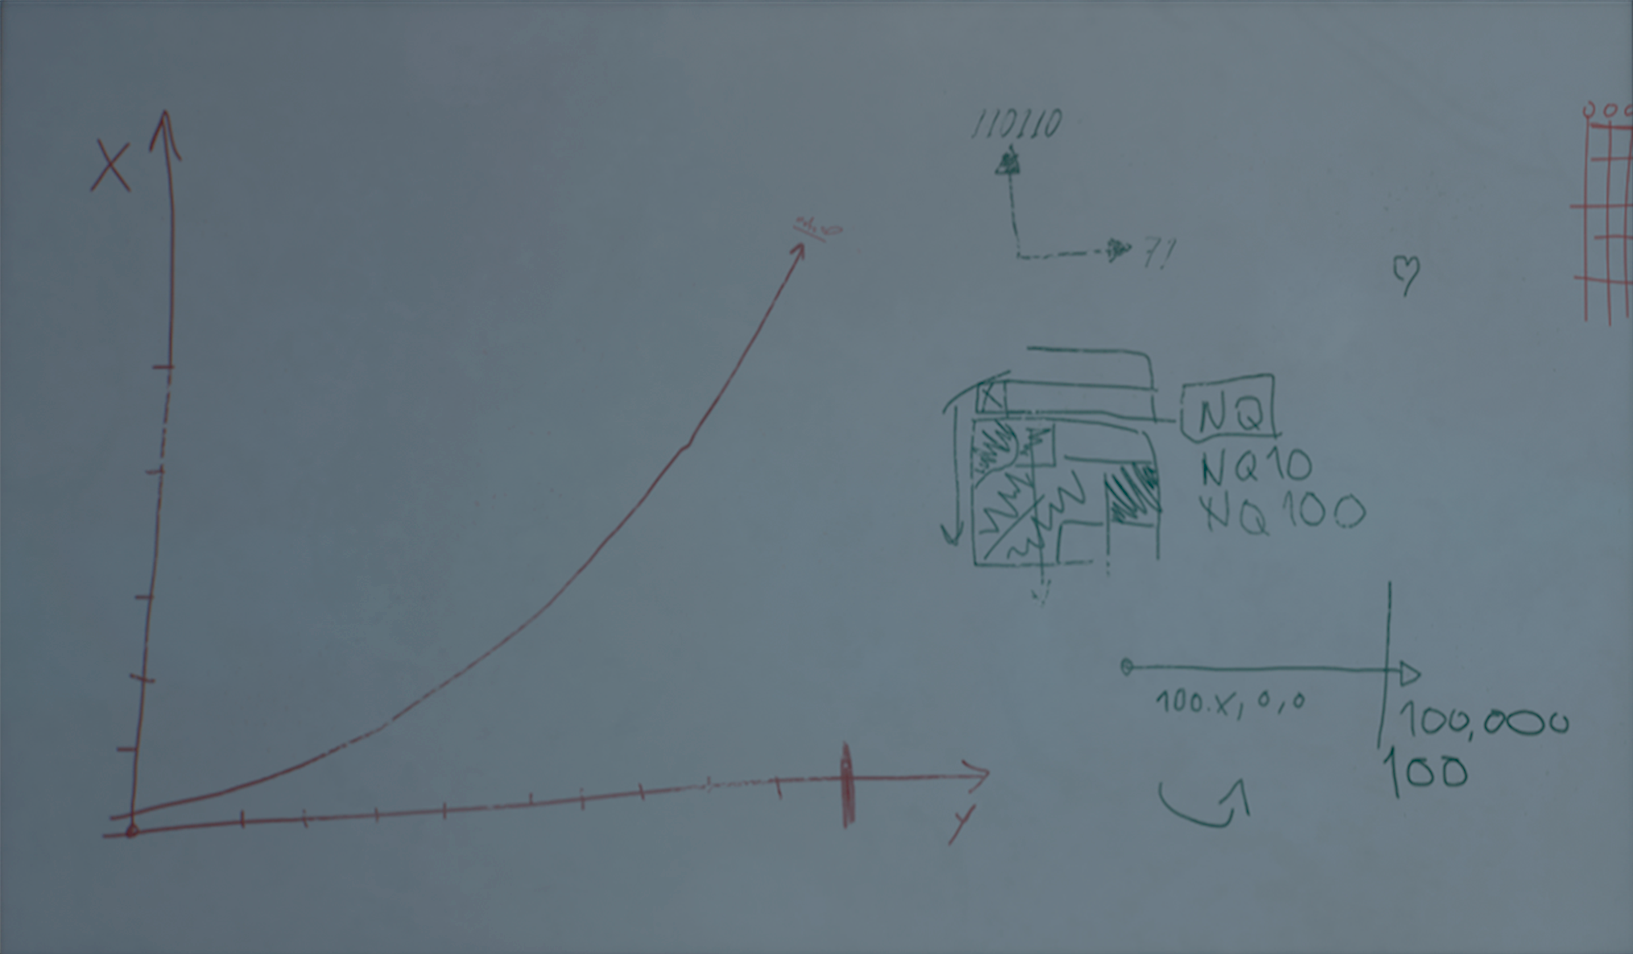 X
110110
NQ
NQ10
NQ100
100.x, 0,0
100,000
100
y
000